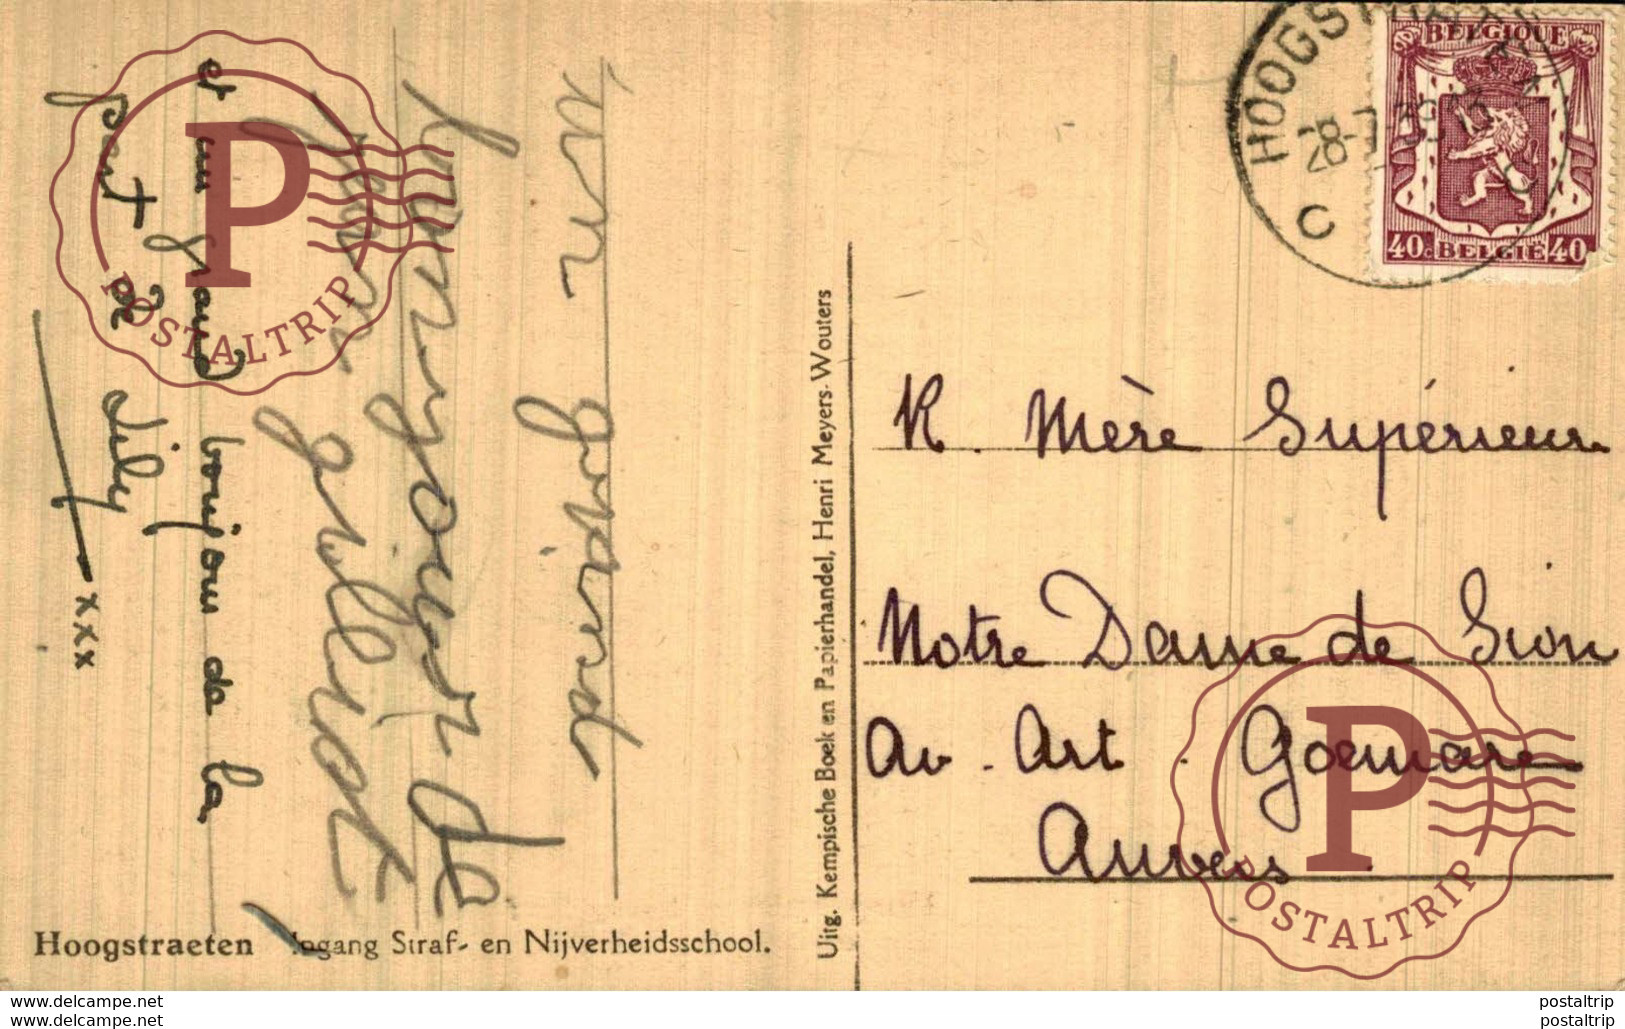 un grand
bonjour de
jean gilliot
et un grand bonjou de la
part de Lily
xxx
Hoogstraeten Ingang Straf- en Nijverheidsschool.
Uitg. Kempische Boek en Papierhandel, Henri Meyers-Wouters
HOOGSTRAETEN
28-7 39
C C
BELGIQUE
40c BELGIË 40
R. Mère Supérieure
Notre Dame de Sion
Av. Art. Goemare
Anvers
P
POSTALTRIP
P
POSTALTRIP
www.delcampe.net postaltrip
www.delcampe.net postaltrip